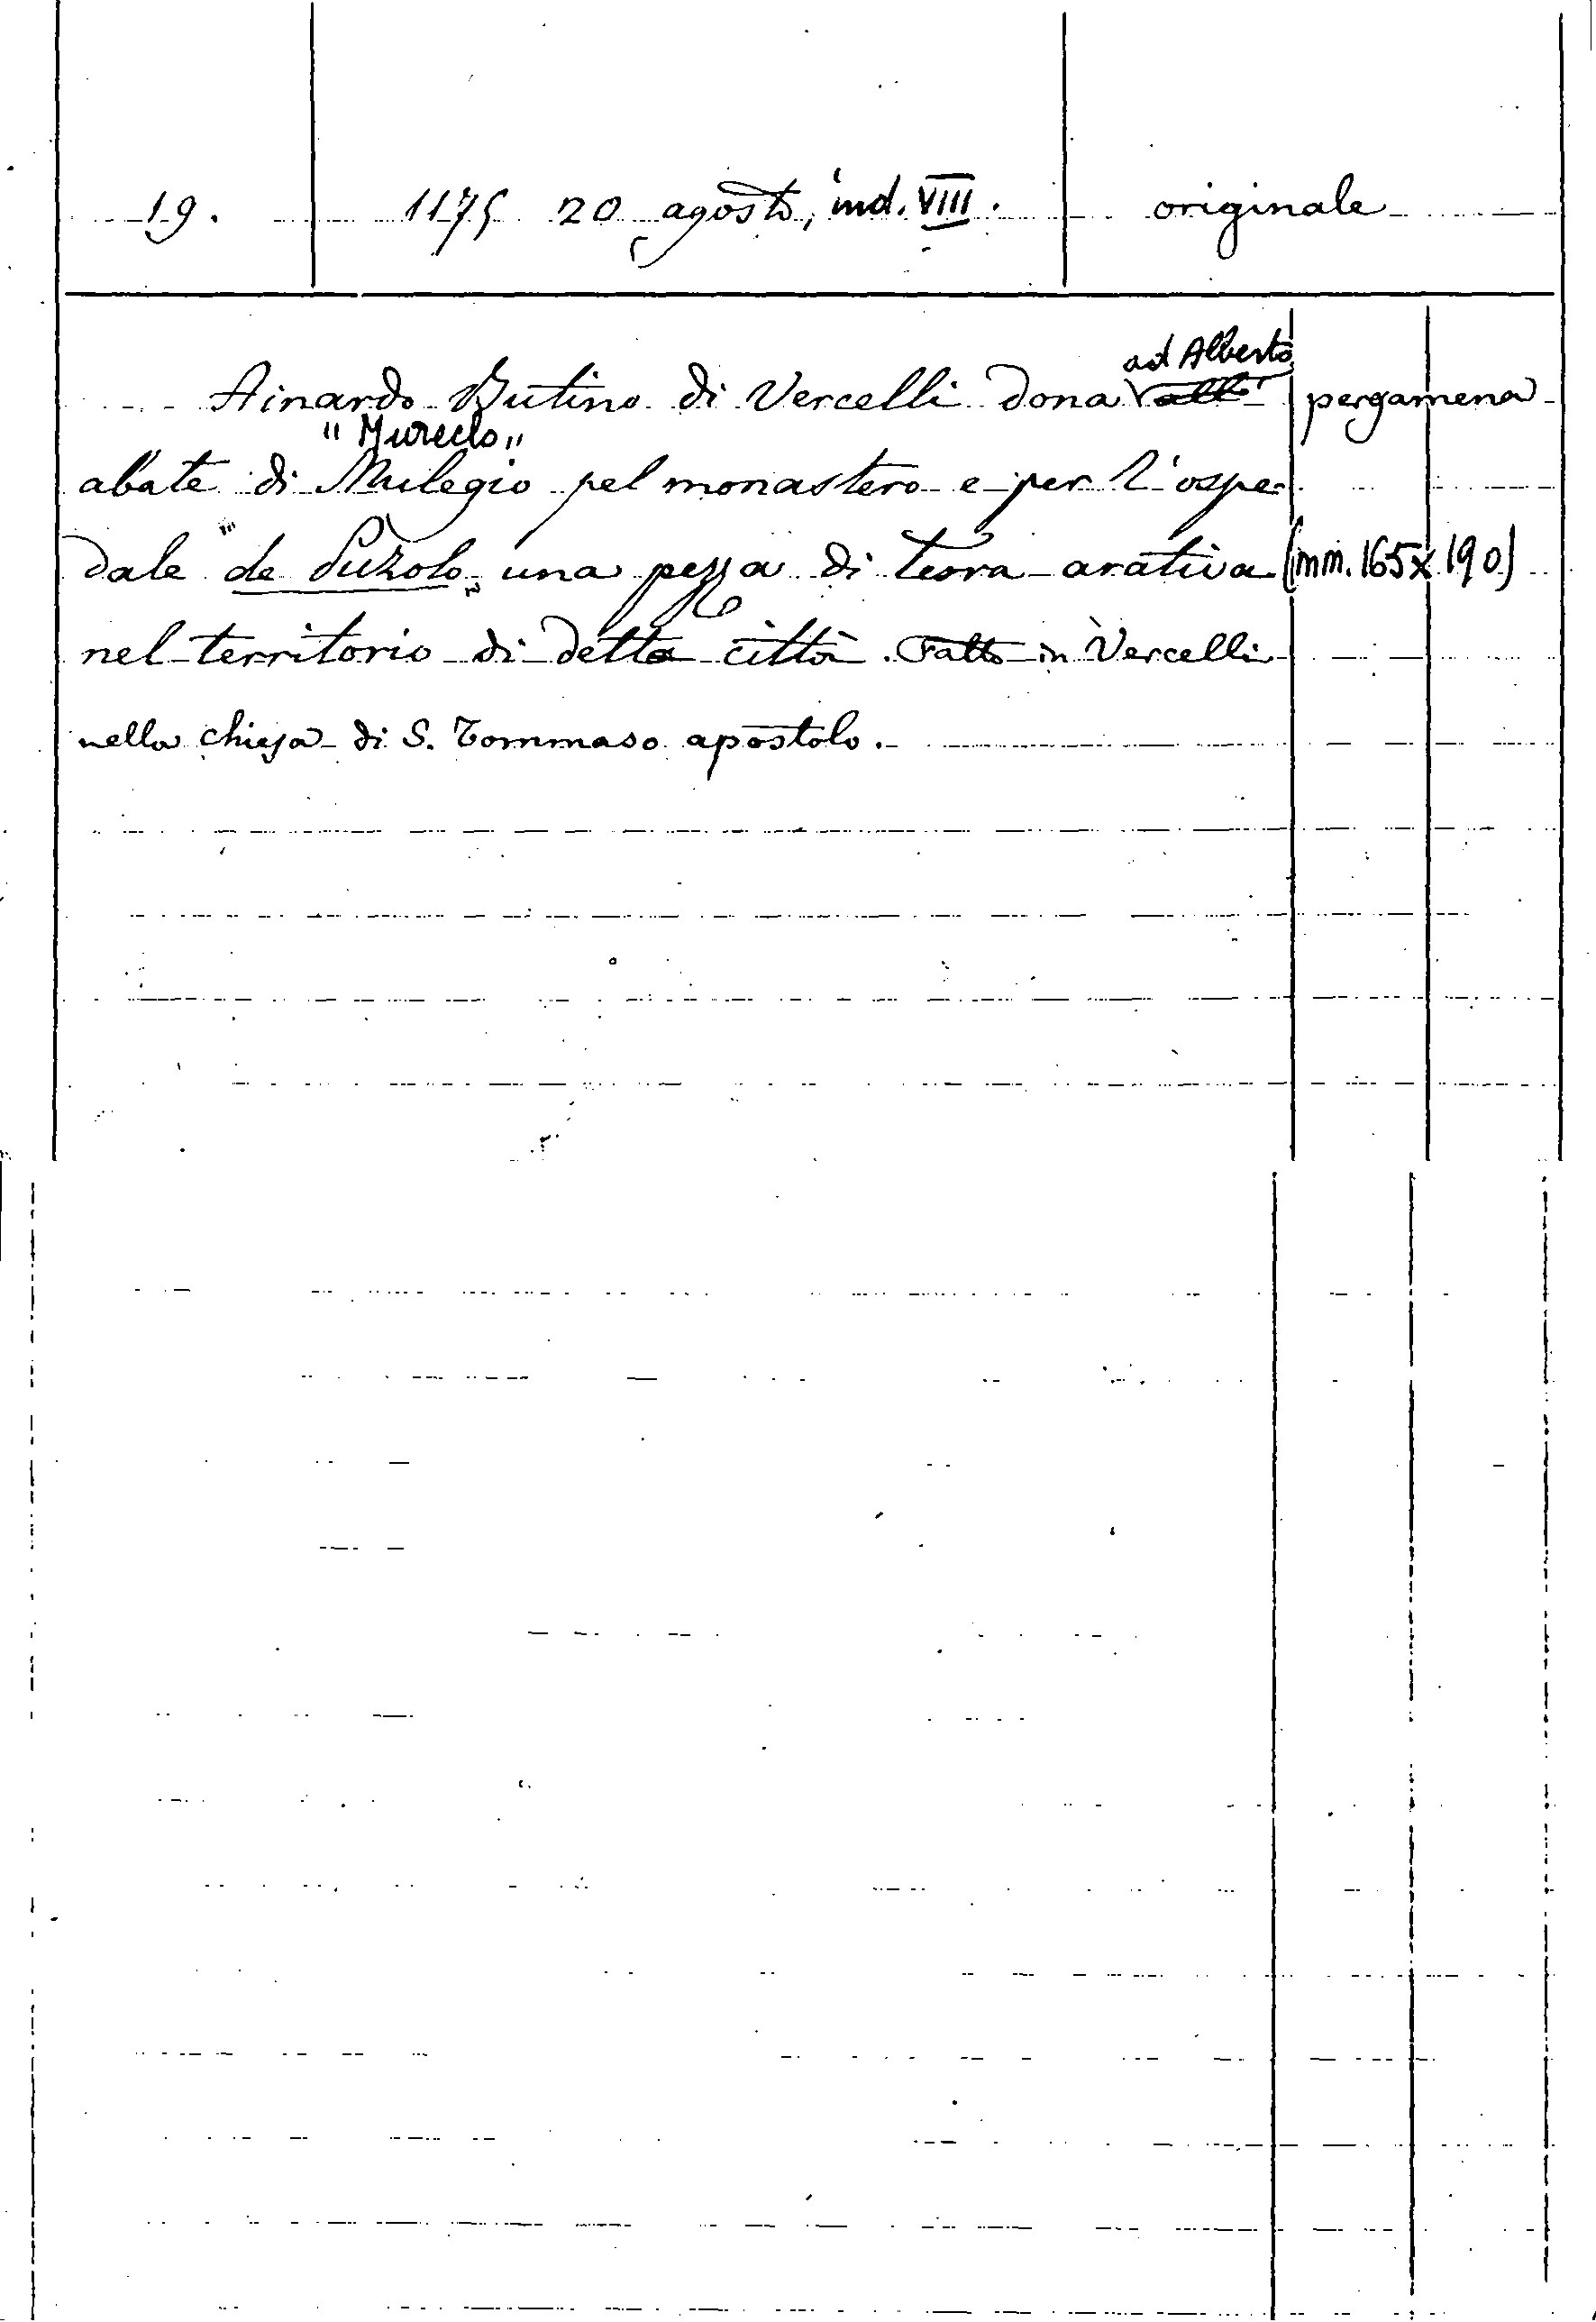 19. 1175 20 agosto, ind. VIII. originale
ad Alberto
Ainardo Butino di Vercelli dona all' pergamena
"Mureclo"
abate di Mulegio pel monastero e per l'ospe-
dale "de Puzolo" una pezza di terra arativa (mm. 165x190)
nel territorio di detta città. Fatto in Vercelli
nella chiesa di S. Tommaso apostolo.